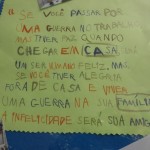 SE VOCÊ PASSAR POR
UMA GUERRA NO TRABALHO
MAS TIVER PAZ QUANDO
CHEGAR EM CASA, SERÁ
UM SER HUMANO FELIZ. MAS,
SE VOCÊ TIVER ALEGRIA
FORA DE CASA E VIVER
UMA GUERRA NA SUA FAMÍLIA
A INFELICIDADE SERÁ SUA AMIGA